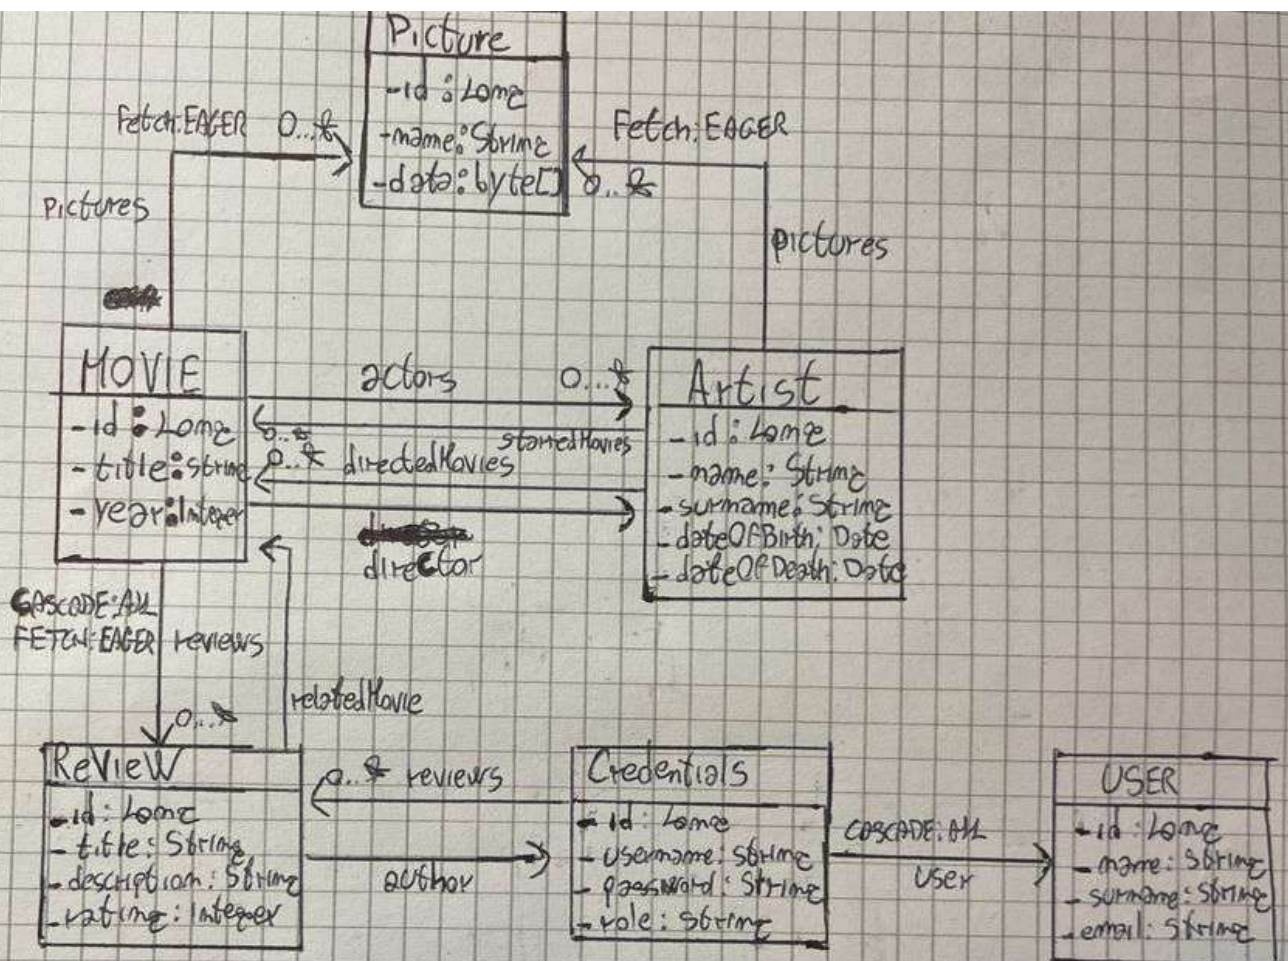 Picture
-id : Long
-name: String
-data: byte[]
Fetch: EAGER 0...*
pictures
Fetch: EAGER
0..*
pictures
MOVIE
-id : Long
-title: String
-year: Integer
actors 0...*
0..* starredMovies
0..* directedMovies
director
Artist
-id : Long
-name: String
-surname: String
-dateOfBirth: Date
-dateOfDeath: Date
CASCADE: ALL
FETCH: EAGER reviews
0...*
relatedMovie
Review
-id: Long
-title: String
-description: String
-rating: Integer
0..* reviews
author
Credentials
-id: Long
-username: String
-password: String
-role: String
CASCADE: ALL
user
USER
-id: Long
-name: String
-surname: String
-email: String